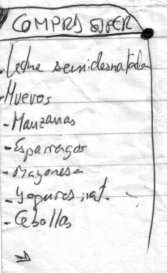 COMPRA SUPER
- Leche semidesnatada
- Huevos
- Manzanas
- Esparragos
- Mayonesa
- yogures nat.
- Cebollas